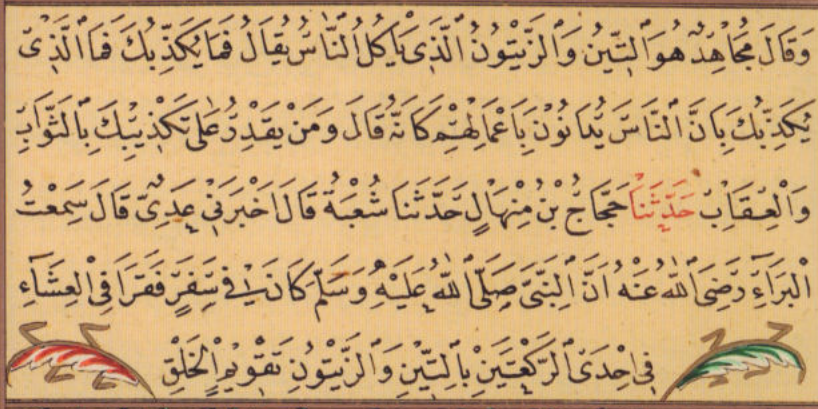 وَقَالَ مُجَاهِدٌ هُوَ ٱلتِّينُ وَٱلزَّيْتُونُ ٱلَّذِى يَأْكُلُ ٱلنَّاسُ يُقَالُ فَمَا يُكَذِّبُكَ فَمَا ٱلَّذِىْ
يُكَذِّبُكَ بِاَنَّ ٱلنَّاسَ يُدَانُوْنَ بِاَعْمَالِهِمْ كَاَنَّهُ قَالَ وَمَنْ يَقْدِرُ عَلٰى تَكْذِيْبِكَ بِٱلثَّوَابِ
وَٱلْعِقَابِ حَدَّثَنَا حَجَّاجُ بْنُ مِنْهَالٍ حَدَّثَنَا شُعْبَةُ قَالَ اَخْبَرَنِىْ عَدِىٌّ قَالَ سَمِعْتُ
ٱلْبَرَاءَ رَضِىَ ٱللّٰهُ عَنْهُ اَنَّ ٱلنَّبِىَّ صَلَّى ٱللّٰهُ عَلَيْهِ وَسَلَّمَ كَانَ فِىْ سَفَرٍ فَقَرَأَ فِى ٱلْعِشَآءِ
فِىْ اِحْدَى ٱلرَّكْعَتَيْنِ بِٱلتِّيْنِ وَٱلزَّيْتُوْنِ تَقْوِيْمٍ ٱلْخَلْقِ